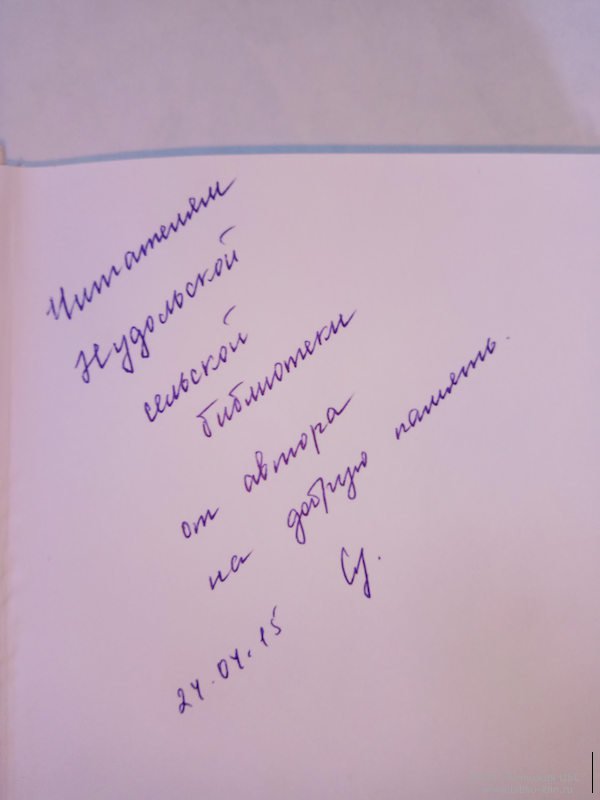 Читателям
Нудольской
сельской
библиотеки
от автора
на добрую память.
24.04.15